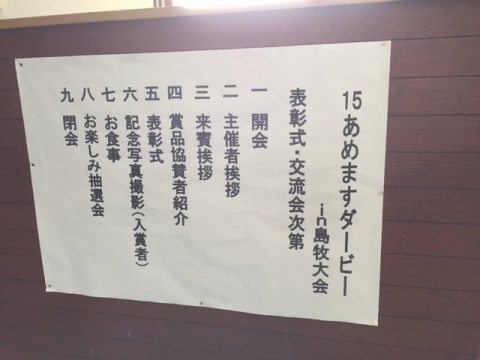 15あめますダービー
in島牧大会
表彰式・交流会次第
一 開会
二 主催者挨拶
三 来賓挨拶
四 賞品協賛者紹介
五 表彰式
六 記念写真撮影(入賞者)
七 お食事
八 お楽しみ抽選会
九 閉会